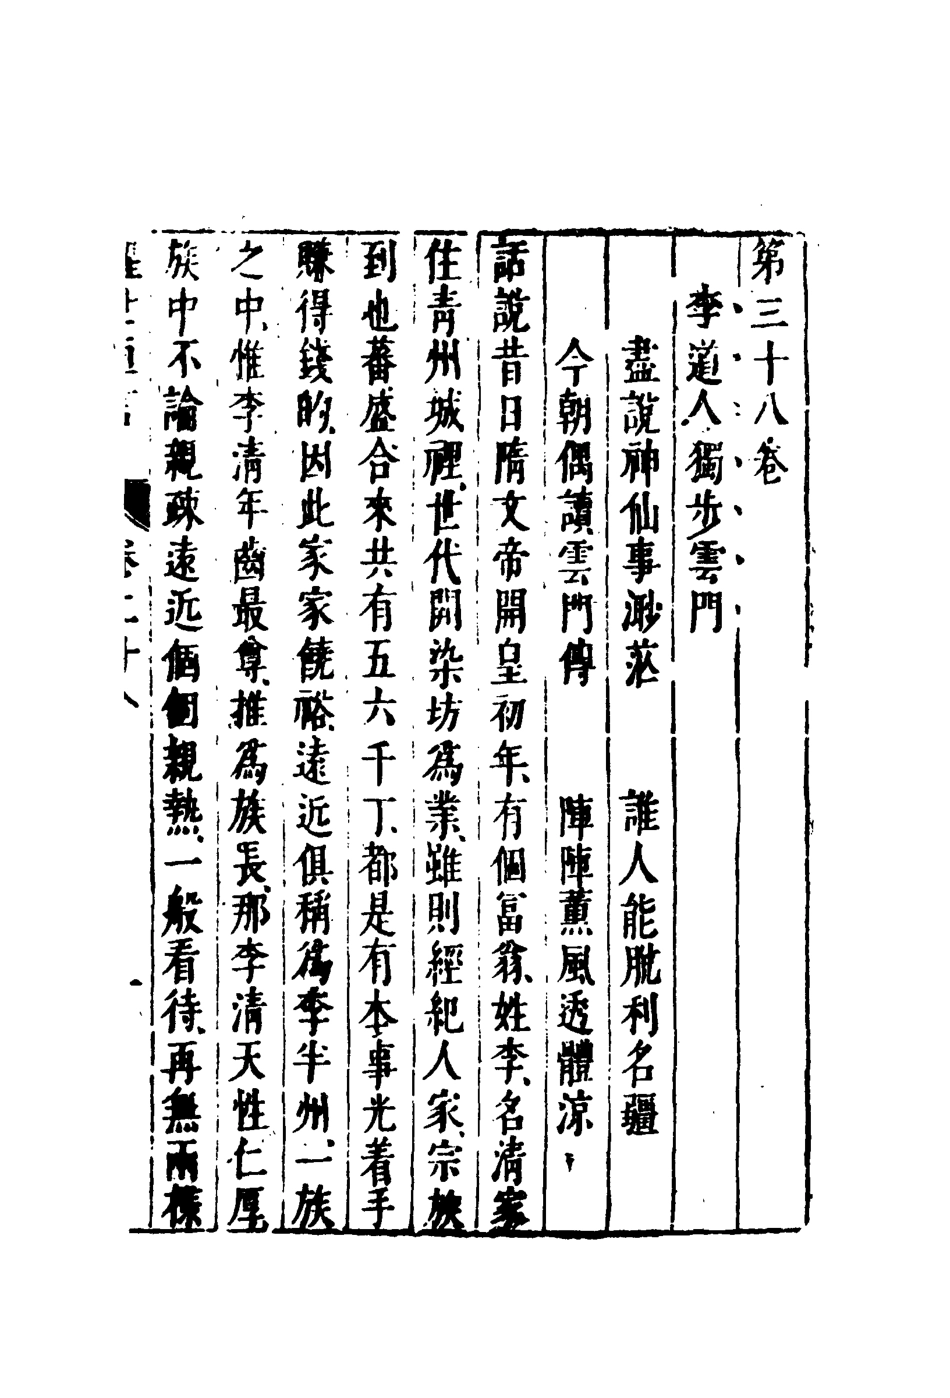 第三十八卷
李道人獨步雲門
盡說神仙事渺茫　誰人能脫利名疆
今朝偶讀雲門傳　陣陣薰風透體涼
話說昔日隋文帝開皇初年、有個富翁、姓李、名清家
住青州城裡、世代開染坊爲業、雖則經紀人家、宗族
到也蕃盛、合來共有五六千丁、都是有本事光着手
賺得錢的、因此家家饒裕、遠近俱稱爲李半州、一族
之中、惟李清年齒最尊、推爲族長、那李清天性仁厚、
族中不論親疎遠近個個親熱、一般看待、再無兩樣
醒世恒言　卷三十八